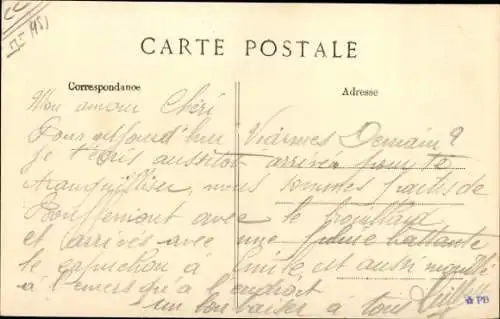 CARTE POSTALE
Correspondance
Adresse
Mon amour Chéri
Pour aujourd'hui Viarmes Demain ?
je t'écris aussitôt arrivée pour te
tranquilliser, nous sommes partis de
Bouffemont avec le brouillard
et arrivés avec une pluie battante
le capuchon à Emile est aussi mouillé
à l'envers qu'à l'endroit
un bon baiser à tous
PB